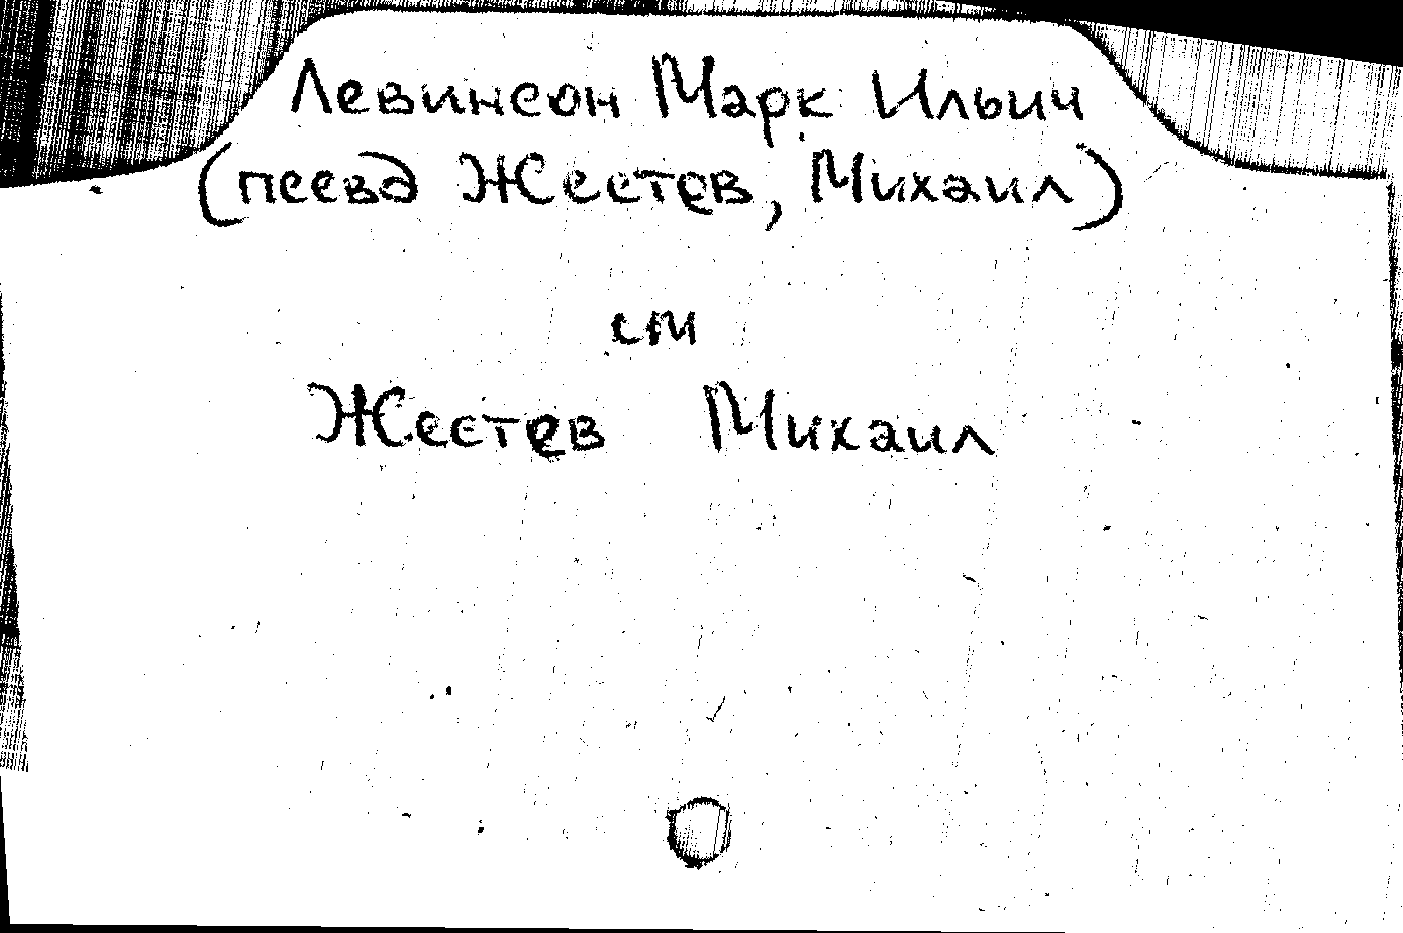 Левинсон Марк Ильич
(псевд Жестев, Михаил)
см
Жестев Михаил